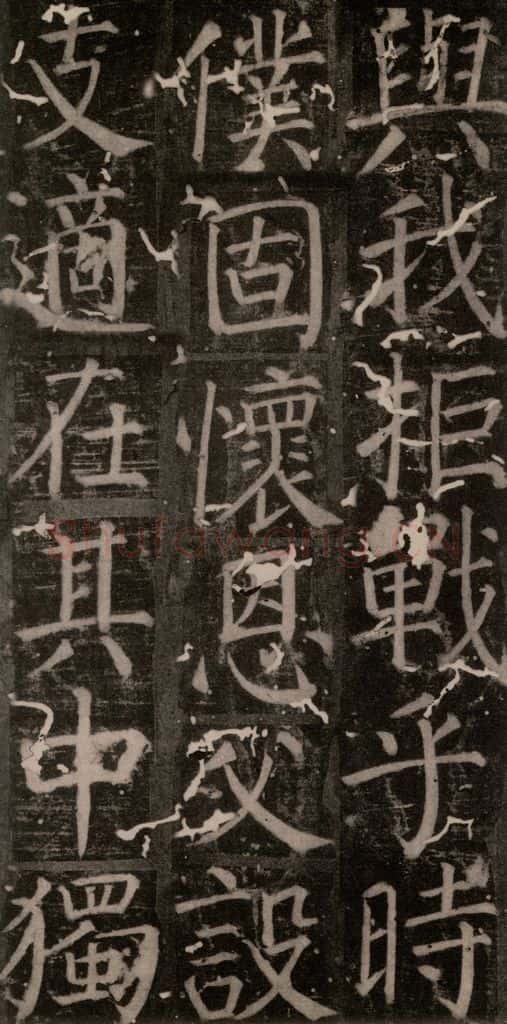 與我拒戰乎時
僕固懷恩父設
支適在其中獨
Shufawang.CN